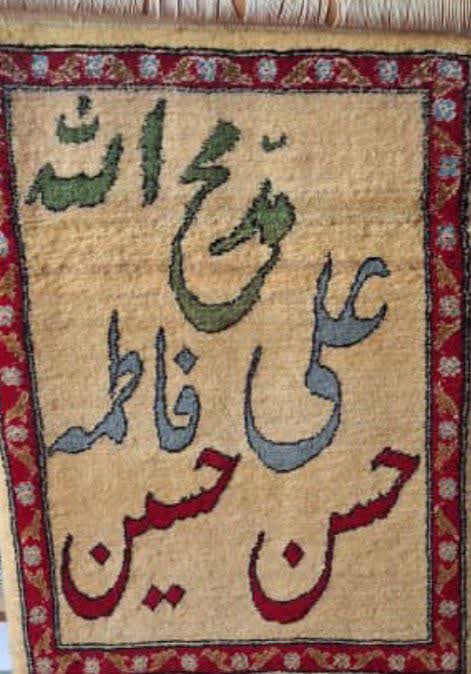 الله محمّد
علی فاطمه
حسن حسین